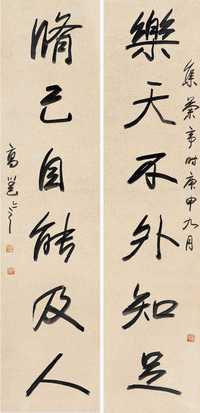 樂天不外知足
集蔡亭时庚申九月
脩己自能及人
高邕之